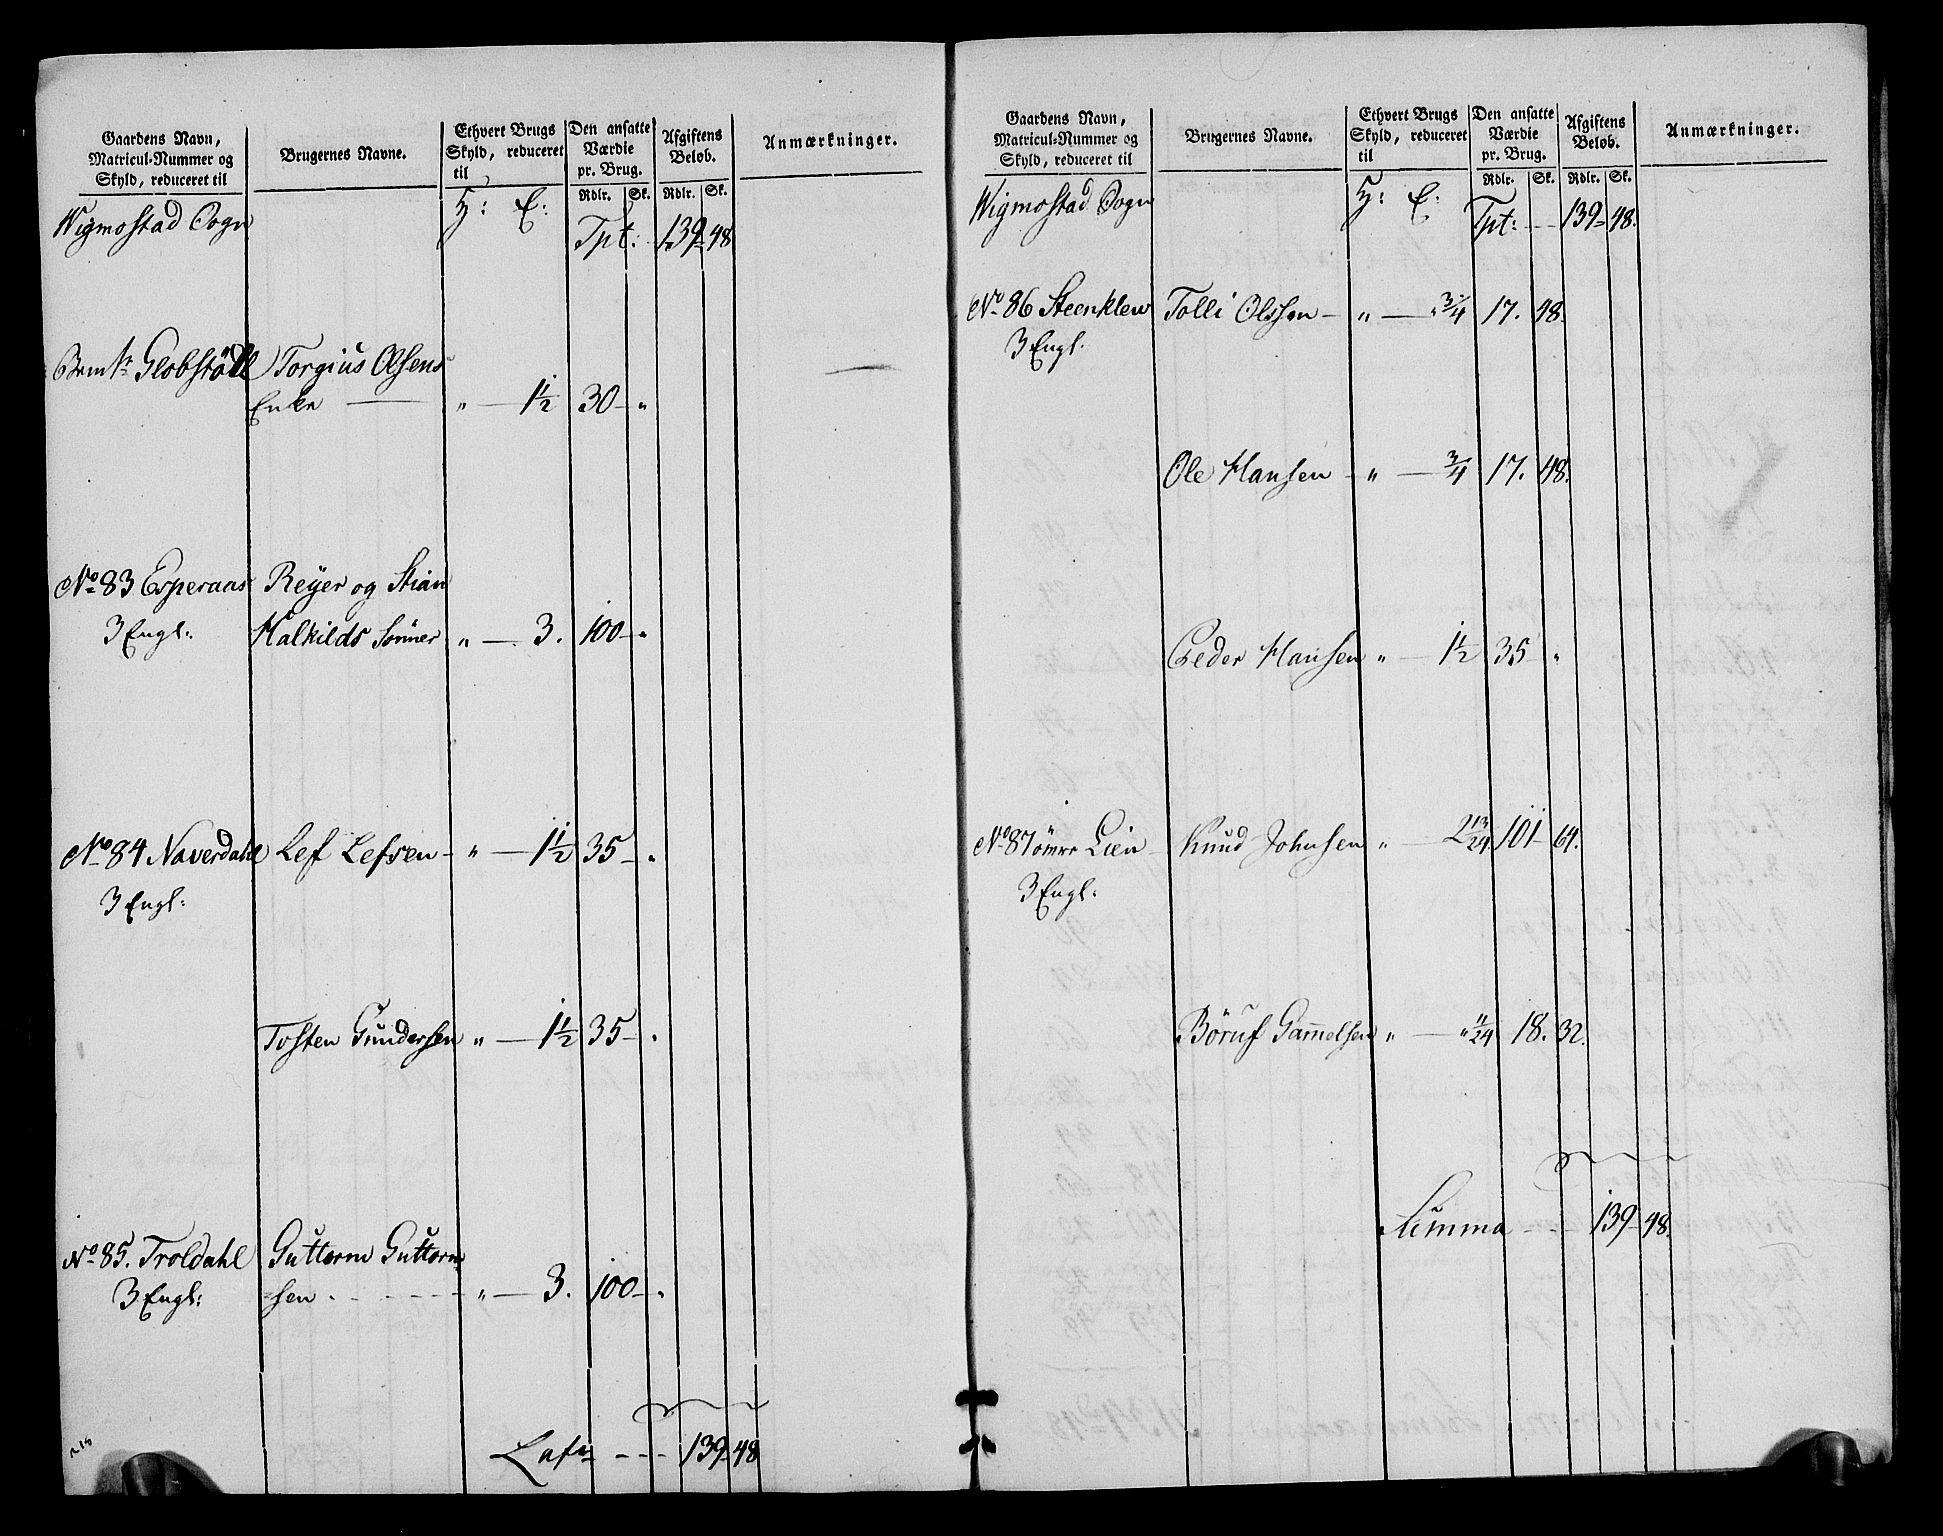 Gaardens Navn,
Matricul-Nummer og
Skyld, reduceret til
Brugernes Navne.
Ethvert Brugs
Skyld, reduceret
til
Den ansatte
Værdie
pr. Brug.
Afgiftens
Beløb.
Anmærkninger.
Rdlr. Sk. Rdlr. Sk.
Wigmostad Sogn H: E: Tpt: 139 - 48
Globstöel Torgius Olsens
Enke " 1½ 30 - "
No 83 Esperaas Reÿer og Stian
3 Engl: Halkilds Sönner " 3. 100 - "
No 84 Naverdahl Lef Lefsen - " 1½ 35 - "
3 Engl:
Tosten Gundersen " 1½ 35 - "
No 85. Troldahl Guttorm Guttorm
3 Engl: =sen " 3. 100 - "
Lats 139 - 48
Gaardens Navn,
Matricul-Nummer og
Skyld, reduceret til
Brugernes Navne.
Ethvert Brugs
Skyld, reduceret
til
Den ansatte
Værdie
pr. Brug.
Afgiftens
Beløb.
Anmærkninger.
Rdlr. Sk. Rdlr. Sk.
Wigmostad Sogn H: E: Tpt: 139 - 48.
No 86 Steenklev Tolli Olssen - " " ¾ 17. 48.
3 Engl.
Ole Hansen - " ¾ 17. 48.
Peder Hansen " 1½ 35 - "
No 87 öwre Lien Knud Johnsen " 2 13/24 101 - 64.
3 Engl:
Böruf Gam̄elsen " " 11/24 18. 32.
Summa 139 - 48.